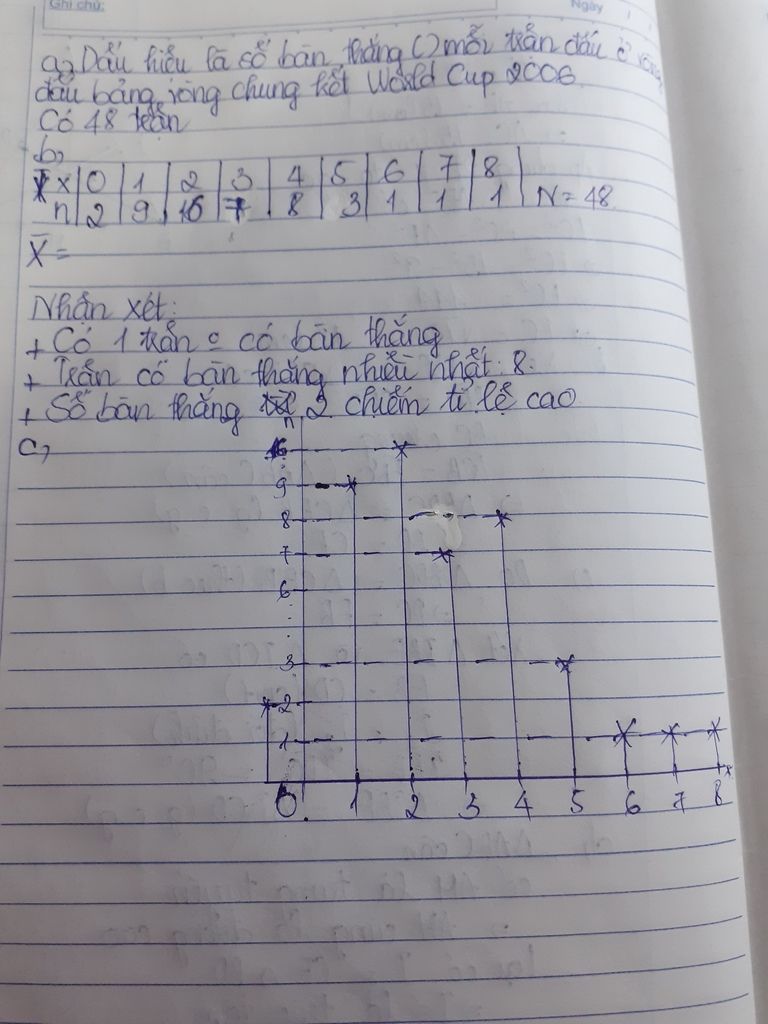 Ghi chú:
Ngày
a, Dấu hiệu là số bàn thắng () mỗi trận đấu ở vòng
đấu bảng vòng chung kết World Cup 2006
Có 48 trận
b,
x 0 1 2 3 4 5 6 7 8
n 2 9 16 7 8 3 1 1 1 N = 48
X̄ =
Nhận xét:
+ Có 1 trận o có bàn thắng
+ Trận có bàn thắng nhiều nhất: 8.
+ Số bàn thắng 2 chiếm tỉ lệ cao
c,
n
16
9
8
7
6
3
2
1
0 1 2 3 4 5 6 7 8 x